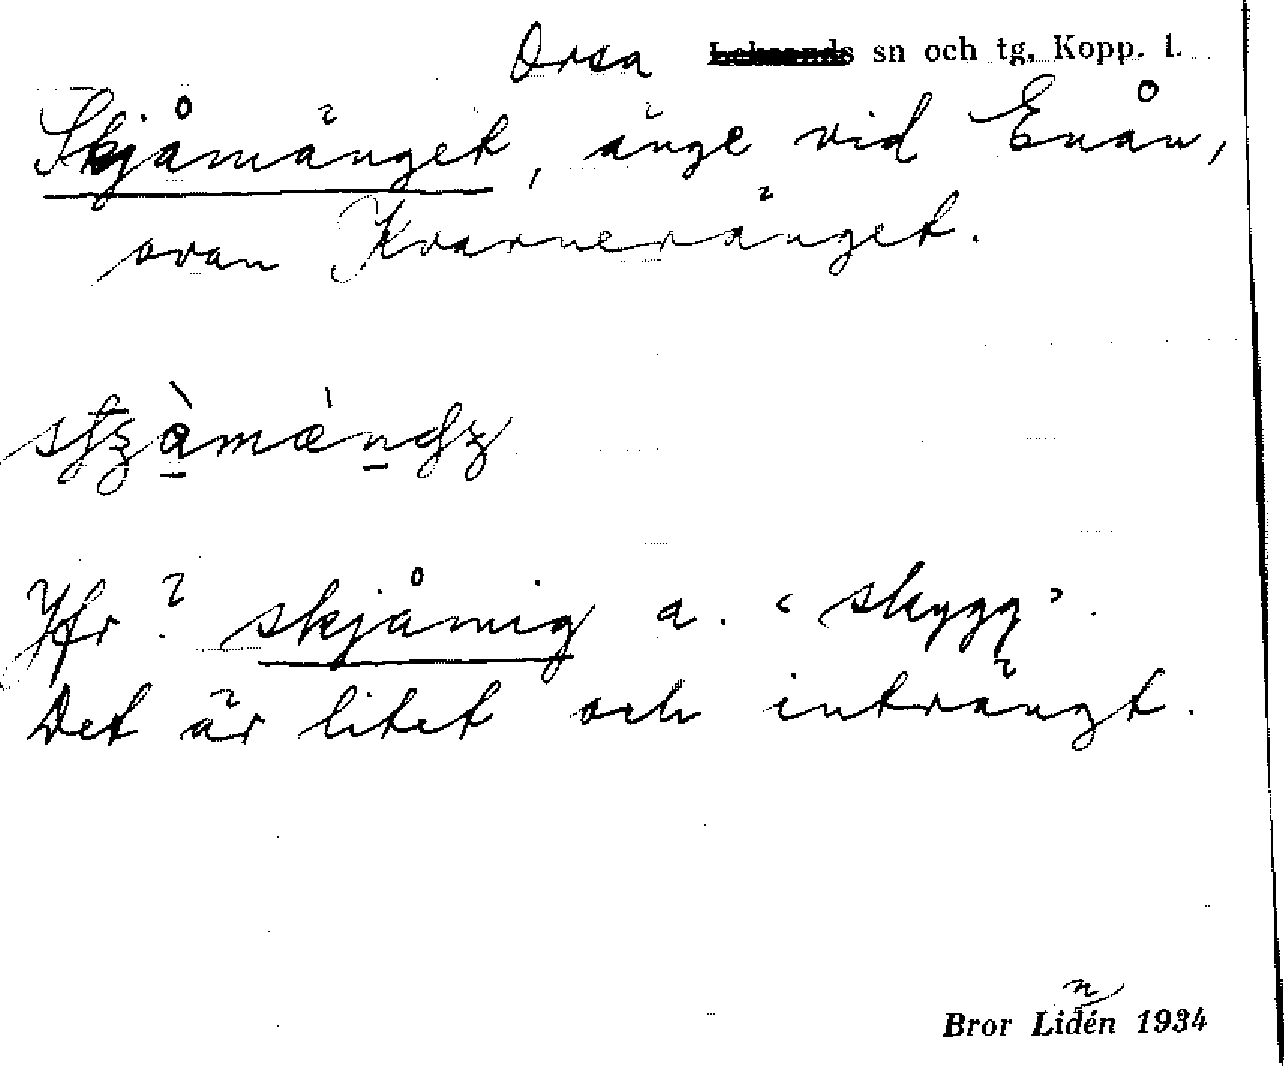 Orsa sn och tg, Kopp. l.
Skjåmänget, änge vid Enån,
ovan Kvarnevänget.
Jfr? skjåmig a. "skygg".
Det är litet och inträngt.
Bror Lidén 1934